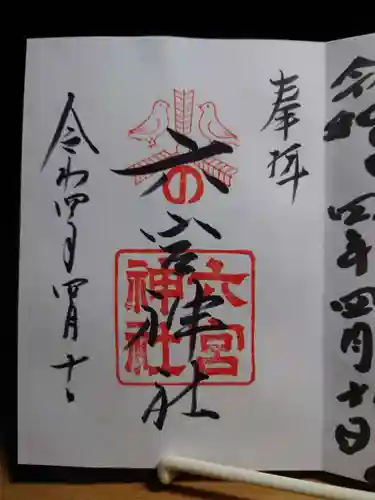 奉拝
六の宮神社
六宮
神社
令和四年四月十二
令和四年四月十日